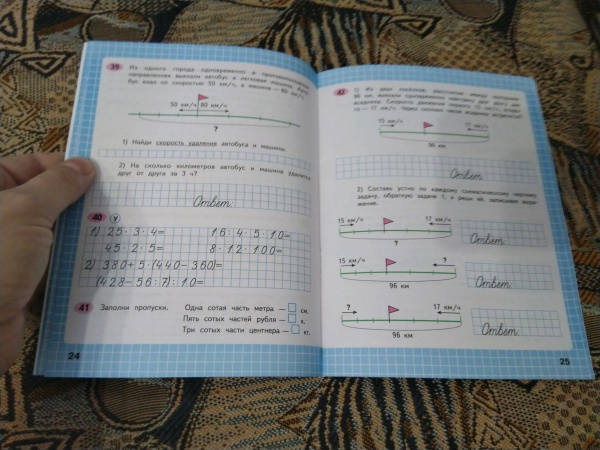 39 Из одного города одновременно в противоположных
направлениях выехали автобус и легковая машина.
бус ехал со скоростью 50 км/ч, а машина — 80 км/ч.
50 км/ч 80 км/ч
?
1) Найди скорость удаления автобуса и машины.
2) На сколько километров автобус и машина удалятся
друг от друга за 3 ч?
Ответ:
40 У
1) 25·3·4= 16·4·5·10=
45·2·5= 8·12·100=
2) 380+5·(440-360)=
(428-56:7):10=
41 Заполни пропуски. Одна сотая часть метра — см.
Пять сотых частей рубля — к.
Три сотых части центнера — кг.
24
42 1) Из двух посёлков, расстояние между которыми
96 км, выехали одновременно навстречу друг другу два
всадника. Скорость движения первого 15 км/ч, второ-
го — 17 км/ч. Через сколько часов всадники встретятся?
15 км/ч 17 км/ч
96 км
Ответ:
2) Составь устно по каждому схематическому чертежу
задачу, обратную задаче 1, и реши её, записывая выра-
жение.
15 км/ч 17 км/ч
?
Ответ:
15 км/ч ?
96 км
Ответ:
? 17 км/ч
96 км
Ответ:
25